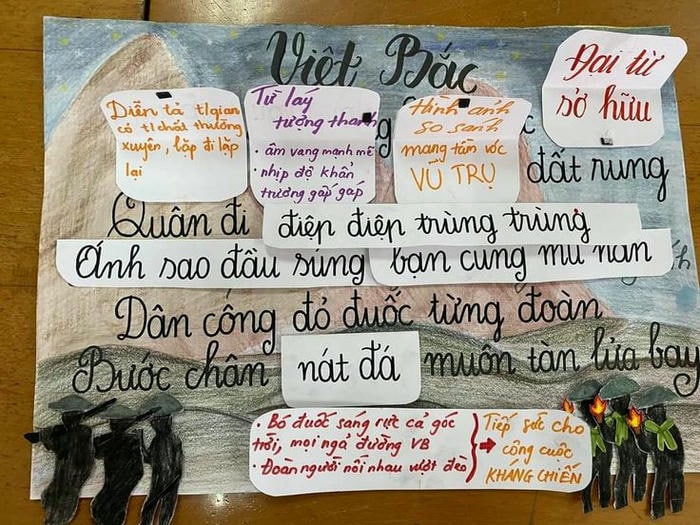 Việt Bắc
Đại từ
sở hữu
Diễn tả t/gian
có t/chất thường
xuyên, lặp đi lặp
lại
Từ láy
tượng thanh
• âm vang mạnh mẽ
• nhịp độ khẩn
trương gấp gáp
Hình ảnh
so sánh
mang tầm vóc
VŨ TRỤ
đất rung
Quân đi điệp điệp trùng trùng
Ánh sao đầu súng bạn cùng mũ nan
Dân công đỏ đuốc từng đoàn
Bước chân nát đá muôn tàn lửa bay
• Bó đuốc sáng rực cả góc
trời, mọi ngả đường VB
• Đoàn người nối nhau vượt đèo
Tiếp sức cho
công cuộc
KHÁNG CHIẾN